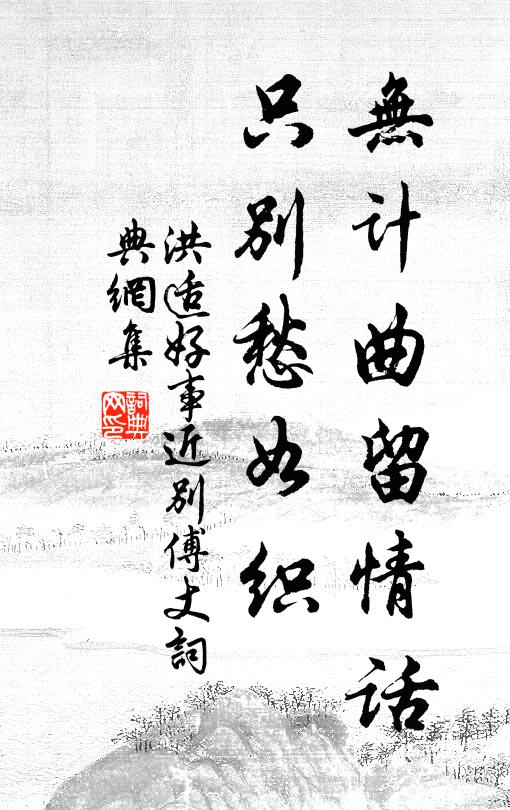 無计曲留情话
只别愁如织
洪适好事近别傅丈詞
典網集
詞典
网印